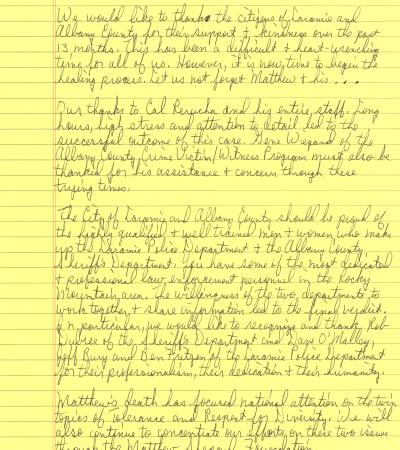 We would like to thank the citizens of Laramie and
Albany County for their support & kindness over the past
13 months. This has been a difficult & heart-wrenching
time for all of us. However, it is now time to begin the
healing process. Let us not forget Matthew & his . . .
Our thanks to Cal Rerucha and his entire staff. Long
hours, high stress and attention to detail led to the
successful outcome of this case. Gene Wegand of the
Albany County Crime Victim/Witness Program must also be
thanked for his assistance & concern through these
trying times.
The City of Laramie and Albany County should be proud of
the highly qualified & well trained men & women who make
up the Laramie Police Department & the Albany County
Sheriff's Department. You have some of the most dedicated
& professional law enforcement personnel in the Rocky
Mountain area. The willingness of the two departments to
work together & share information led to the final verdict.
In particular, we would like to recognize and thank Rob
DuBree of the Sheriff's Department and Dave O'Malley,
Jeff Bury and Ben Fritzen of the Laramie Police Department
for their professionalism, their dedication & their humanity.
Matthew's death has focused national attention on the twin
topics of Tolerance and Respect for Diversity. We will
also continue to concentrate our efforts on these two issues
through the Matthew Shepard Foundation